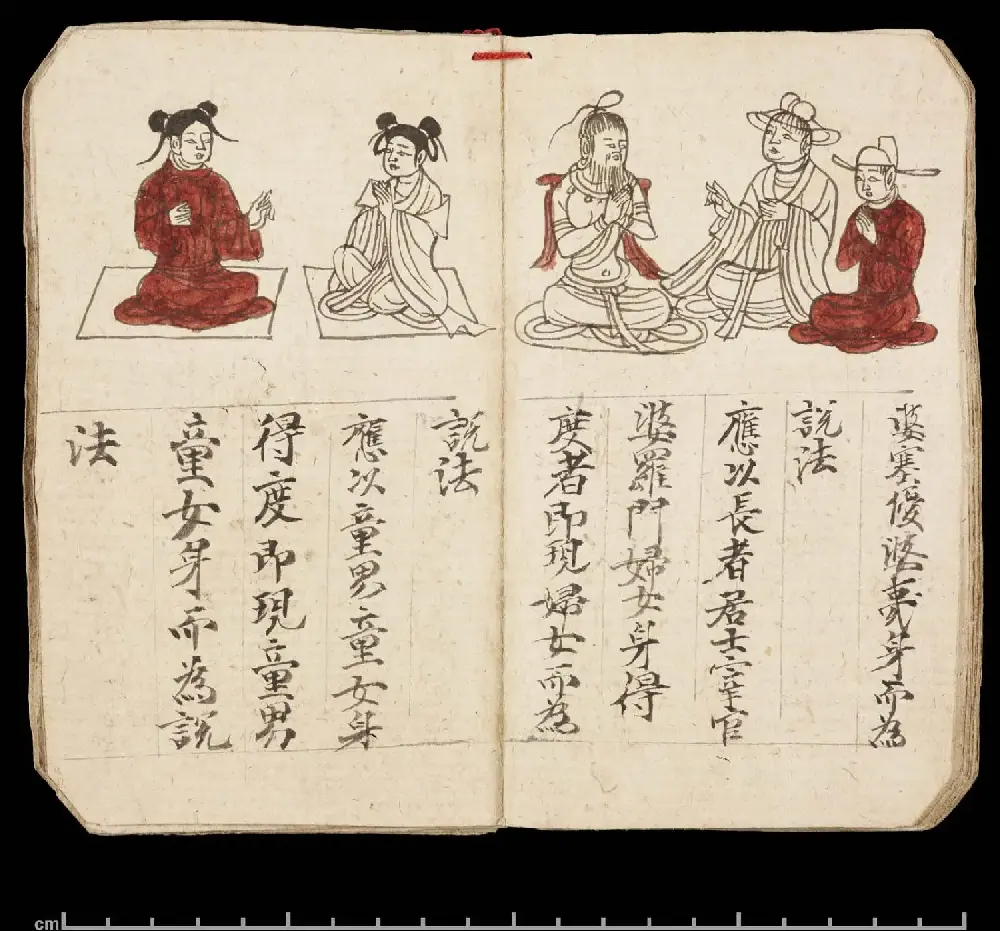 婆塞優婆夷身而為
說法
應以長者居士宰官
婆羅門婦女身得
度者即現婦女而為
說法
應以童男童女身
得度即現童男
童女身而為說
法
cm